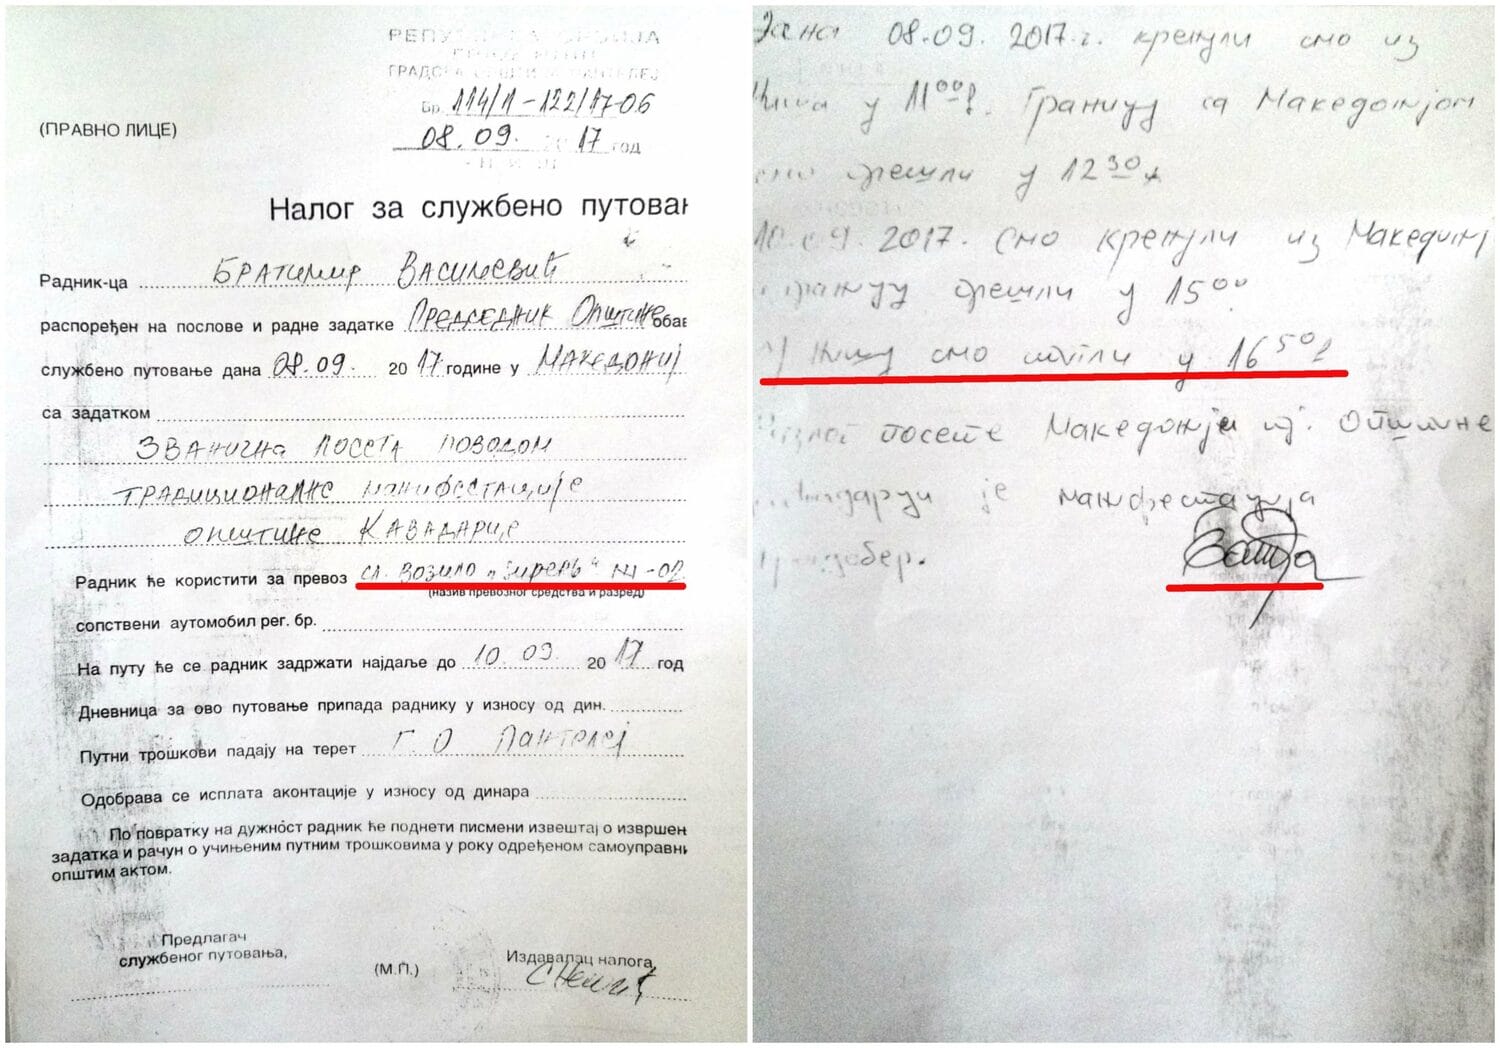 РЕПУБЛИКА СРБИЈА
ГРАД НИШ
ГРАДСКА ОПШТИНА ПАНТЕЛЕЈ
Бр. 114/1-122/17-06
08.09. 2017 год
НИШ
(ПРАВНО ЛИЦЕ)
Налог за службено путовањ
Радник-ца Братимир Васиљевић
распоређен на послове и радне задатке Председник Општине обав
службено путовање дана 08.09. 2017 године у Македониј
са задатком
званична посета поводом
традиционалне манифестације
општине Кавадарце
Радник ће користити за превоз сл. возило
(назив превозног средства и разред)
сопствени аутомобил рег. бр.
На путу ће се радник задржати најдаље до 10.09. 2017 год
Дневница за ово путовање припада раднику у износу од дин.
Путни трошкови падају на терет Г.О Пантелеј
Одобрава се исплата аконтације у износу од динара
По повратку на дужност радник ће поднети писмени извештај о извршен
задатка и рачун о учињеним путним трошковима у року одређеном самоуправн
општим актом.
Предлагач
службеног путовања,
(М.П.)
Издавалац налога,
Дана 08.09.2017.г. кренули смо из
Ниша у 11ºº Границу са Македонијом
смо прешли у 12³º
10.09.2017. смо кренули из Македониј
границу прешли у 15ºº
У Ниш смо стигли у 16⁵º
посете Македонији тј. Општине
је манифестација